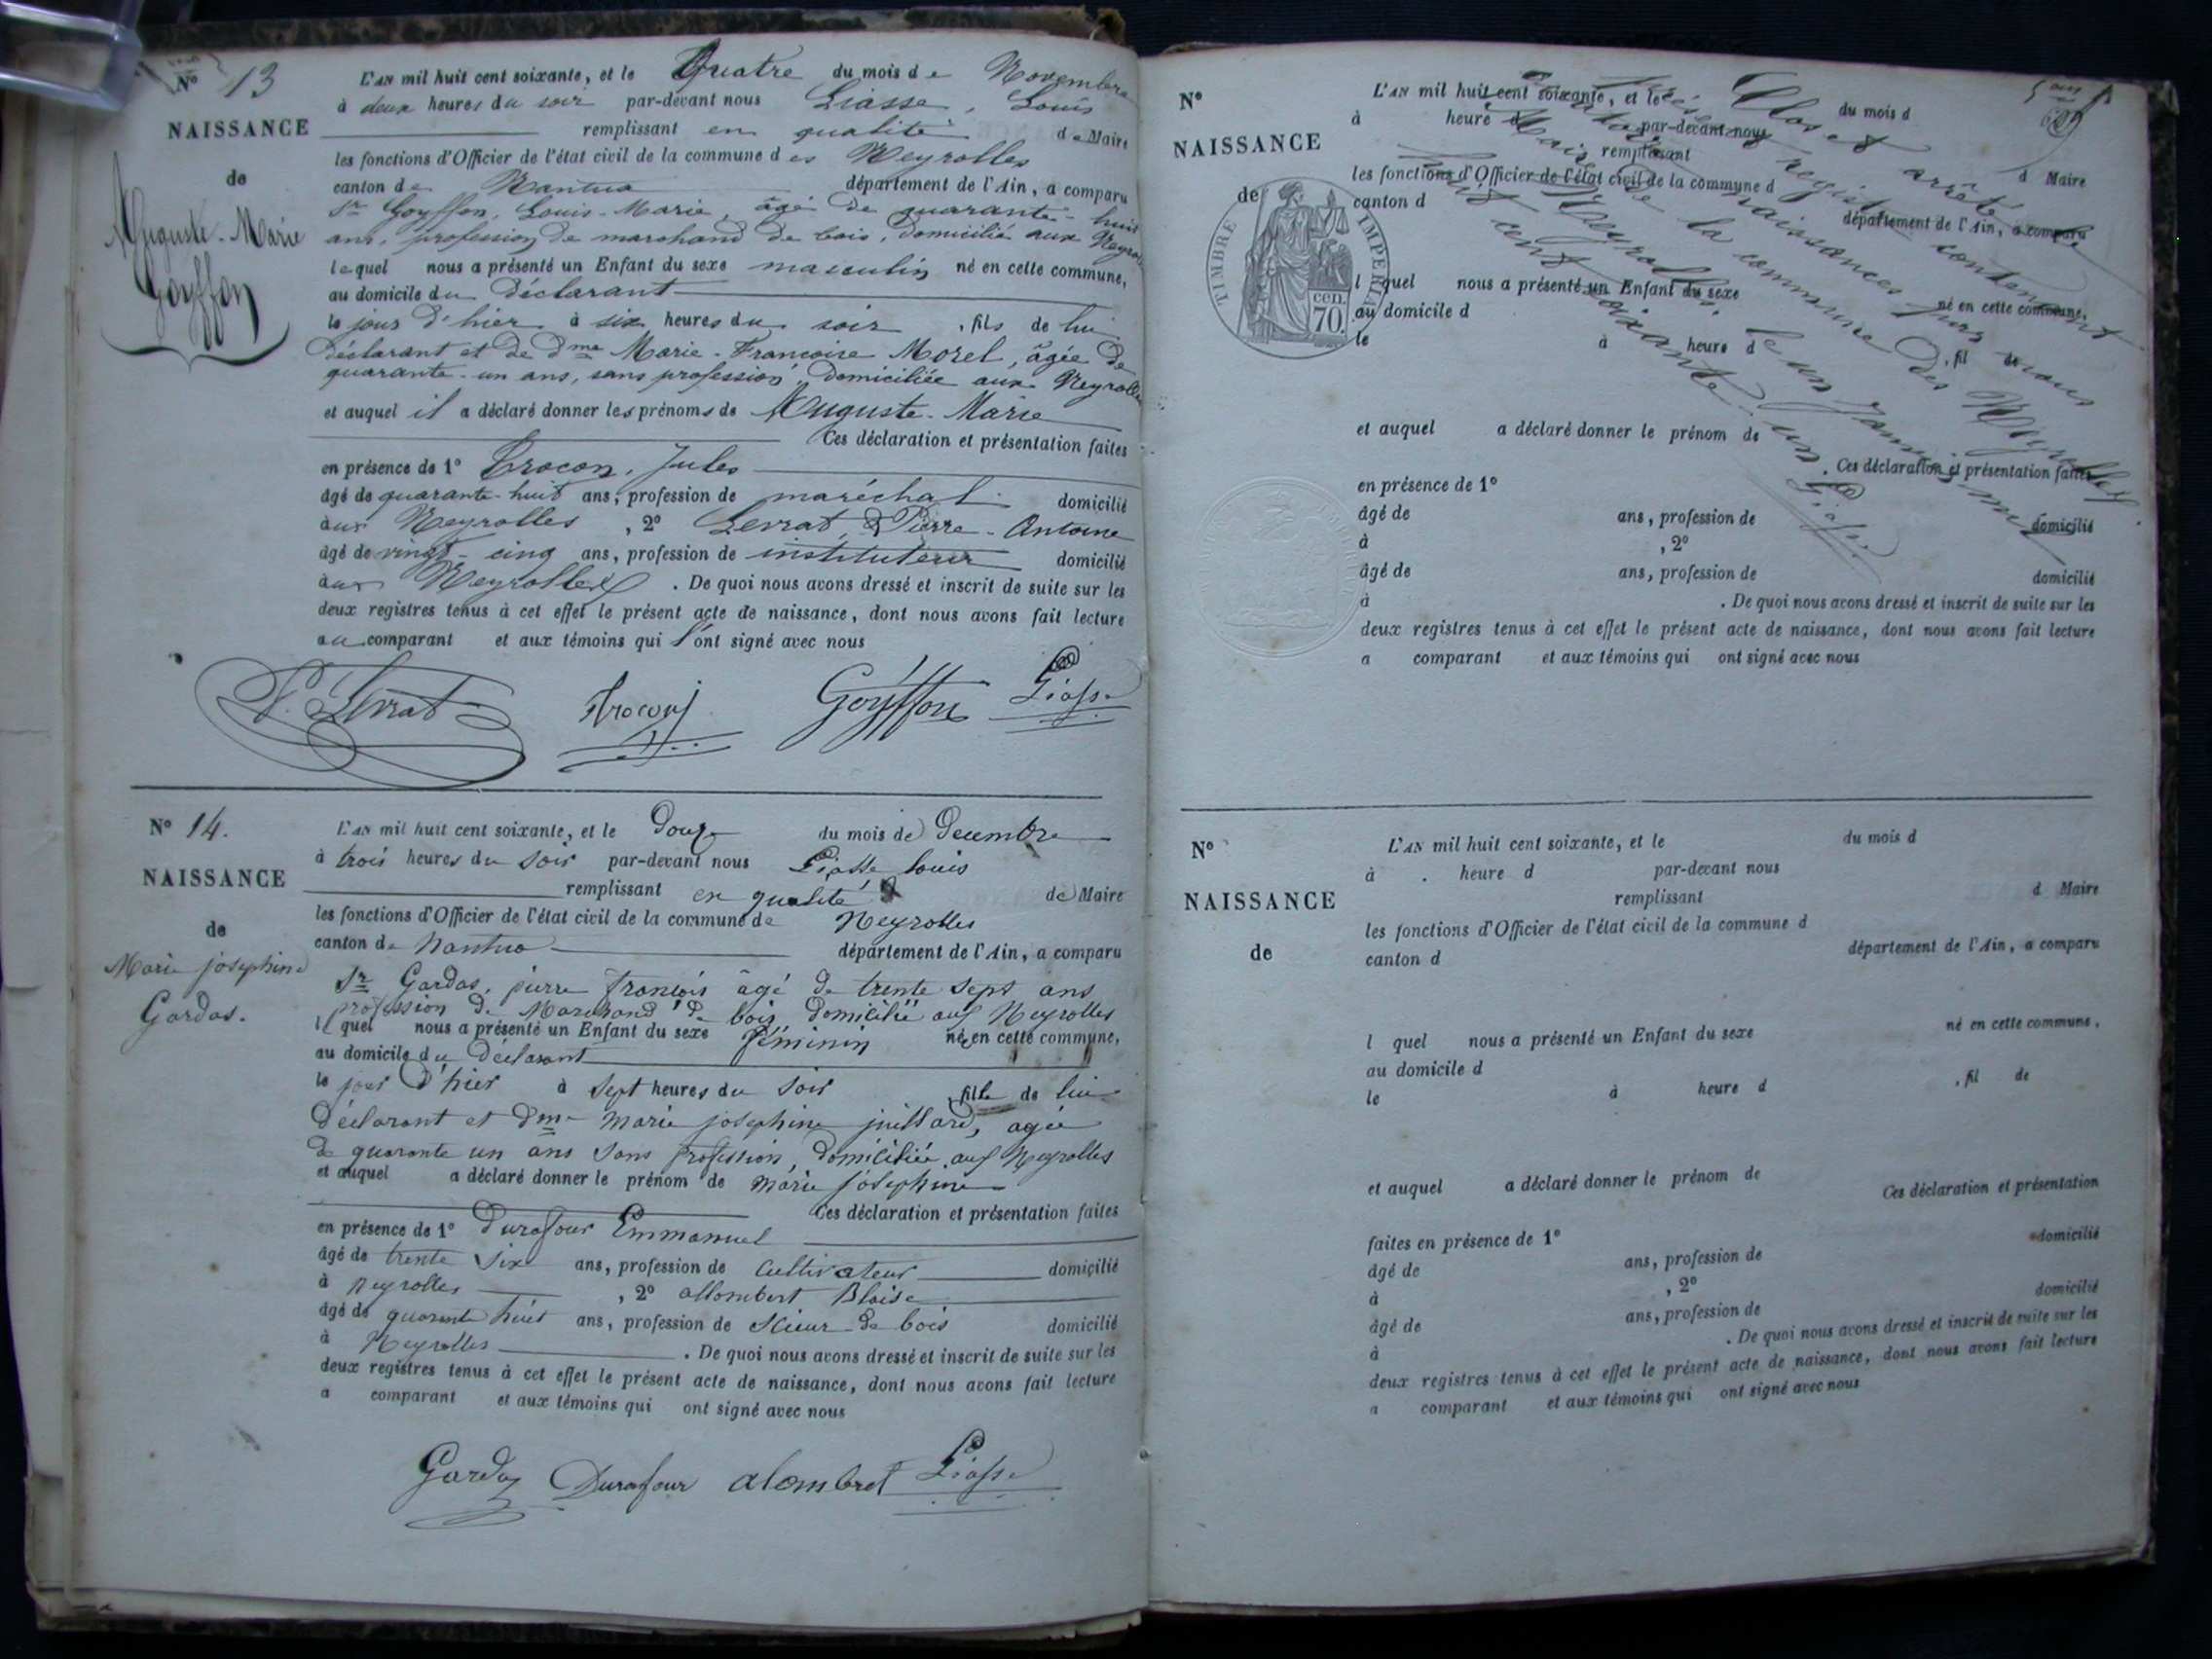 N° 13
NAISSANCE
de
Auguste-Marie
Goyffon
L'AN mil huit cent soixante, et le Quatre du mois de Novembre
à deux heures du soir par-devant nous Liasse, Louis
remplissant en qualité de Maire
les fonctions d'Officier de l'état civil de la commune des Neyrolles
canton de Nantua département de l'Ain, a comparu
Sr Goyffon, Louis-Marie, âgé de quarante-huit
ans, profession de marchand de bois, domicilié aux Neyrolles
lequel nous a présenté un Enfant du sexe masculin né en cette commune,
au domicile du déclarant
le jour d'hier à six heures du soir, fils de lui
déclarant et de dme Marie-Francoise Morel, âgée de
quarante-un ans, sans profession, domiciliée aux Neyrolles
et auquel il a déclaré donner les prénoms de Auguste-Marie
Ces déclaration et présentation faites
en présence de 1° Trocon, Jules
âgé de quarante-huit ans, profession de maréchal domicilié
aux Neyrolles, 2° Serrat, Pierre-Antoine
âgé de vingt-cinq ans, profession de instituteur domicilié
aux Neyrolles. De quoi nous avons dressé et inscrit de suite sur les
deux registres tenus à cet effet le présent acte de naissance, dont nous avons fait lecture
au comparant et aux témoins qui l'ont signé avec nous
P. Serrat Trocon J Goyffon Liasse
N° 14.
NAISSANCE
de
Marie josephine
Gardas.
L'AN mil huit cent soixante, et le Douze du mois de Decembre
à trois heures du soir par-devant nous Liasse louis
remplissant en qualité de Maire
les fonctions d'Officier de l'état civil de la commune de Neyrolles
canton de Nantua département de l'Ain, a comparu
Sr Gardas, pierre francois âgé de trente sept ans
profession de Marchand de bois domicilié aux Neyrolles
lequel nous a présenté un Enfant du sexe féminin née en cette commune,
au domicile du déclarant
le jour d'hier à sept heures du soir, fille de lui
déclarant et dme marie josephine juillard, agée
de quarante un ans sans profession, domiciliée aux Neyrolles
et auquel a déclaré donner le prénom de marie josephine
Ces déclaration et présentation faites
en présence de 1° Durafour Emmanuel
âgé de trente six ans, profession de cultivateur domicilié
à Neyrolles, 2° allombert Blaise
âgé de quarante huit ans, profession de scieur de bois domicilié
à Neyrolles. De quoi nous avons dressé et inscrit de suite sur les
deux registres tenus à cet effet le présent acte de naissance, dont nous avons fait lecture
a comparant et aux témoins qui ont signé avec nous
Gardas Durafour alombret Liasse
N°
NAISSANCE
de
TIMBRE IMPERIAL
70 cen.
L'AN mil huit cent soixante, et le du mois d
à heure d par-devant nous
remplissant d Maire
les fonctions d'Officier de l'état civil de la commune d
canton d département de l'Ain, a comparu
l quel nous a présenté un Enfant du sexe né en cette commune,
au domicile d
le à heure d , fil de
et auquel a déclaré donner le prénom de
Ces déclaration et présentation faites
en présence de 1°
âgé de ans, profession de domicilié
à , 2°
âgé de ans, profession de domicilié
à . De quoi nous avons dressé et inscrit de suite sur les
deux registres tenus à cet effet le présent acte de naissance, dont nous avons fait lecture
a comparant et aux témoins qui ont signé avec nous
Clos et arrêté le
présent registre contenant
quatorze naissances par nous
Maire de la commune des Neyrolles
Neyrolles, le un Janvier mil
huit cent soixante-un
Liasse
N°
NAISSANCE
de
L'AN mil huit cent soixante, et le du mois d
à heure d par-devant nous
remplissant d Maire
les fonctions d'Officier de l'état civil de la commune d
canton d département de l'Ain, a comparu
l quel nous a présenté un Enfant du sexe né en cette commune,
au domicile d
le à heure d , fil de
et auquel a déclaré donner le prénom de
Ces déclaration et présentation
faites en présence de 1°
âgé de ans, profession de domicilié
à , 2°
âgé de ans, profession de domicilié
à . De quoi nous avons dressé et inscrit de suite sur les
deux registres tenus à cet effet le présent acte de naissance, dont nous avons fait lecture
a comparant et aux témoins qui ont signé avec nous